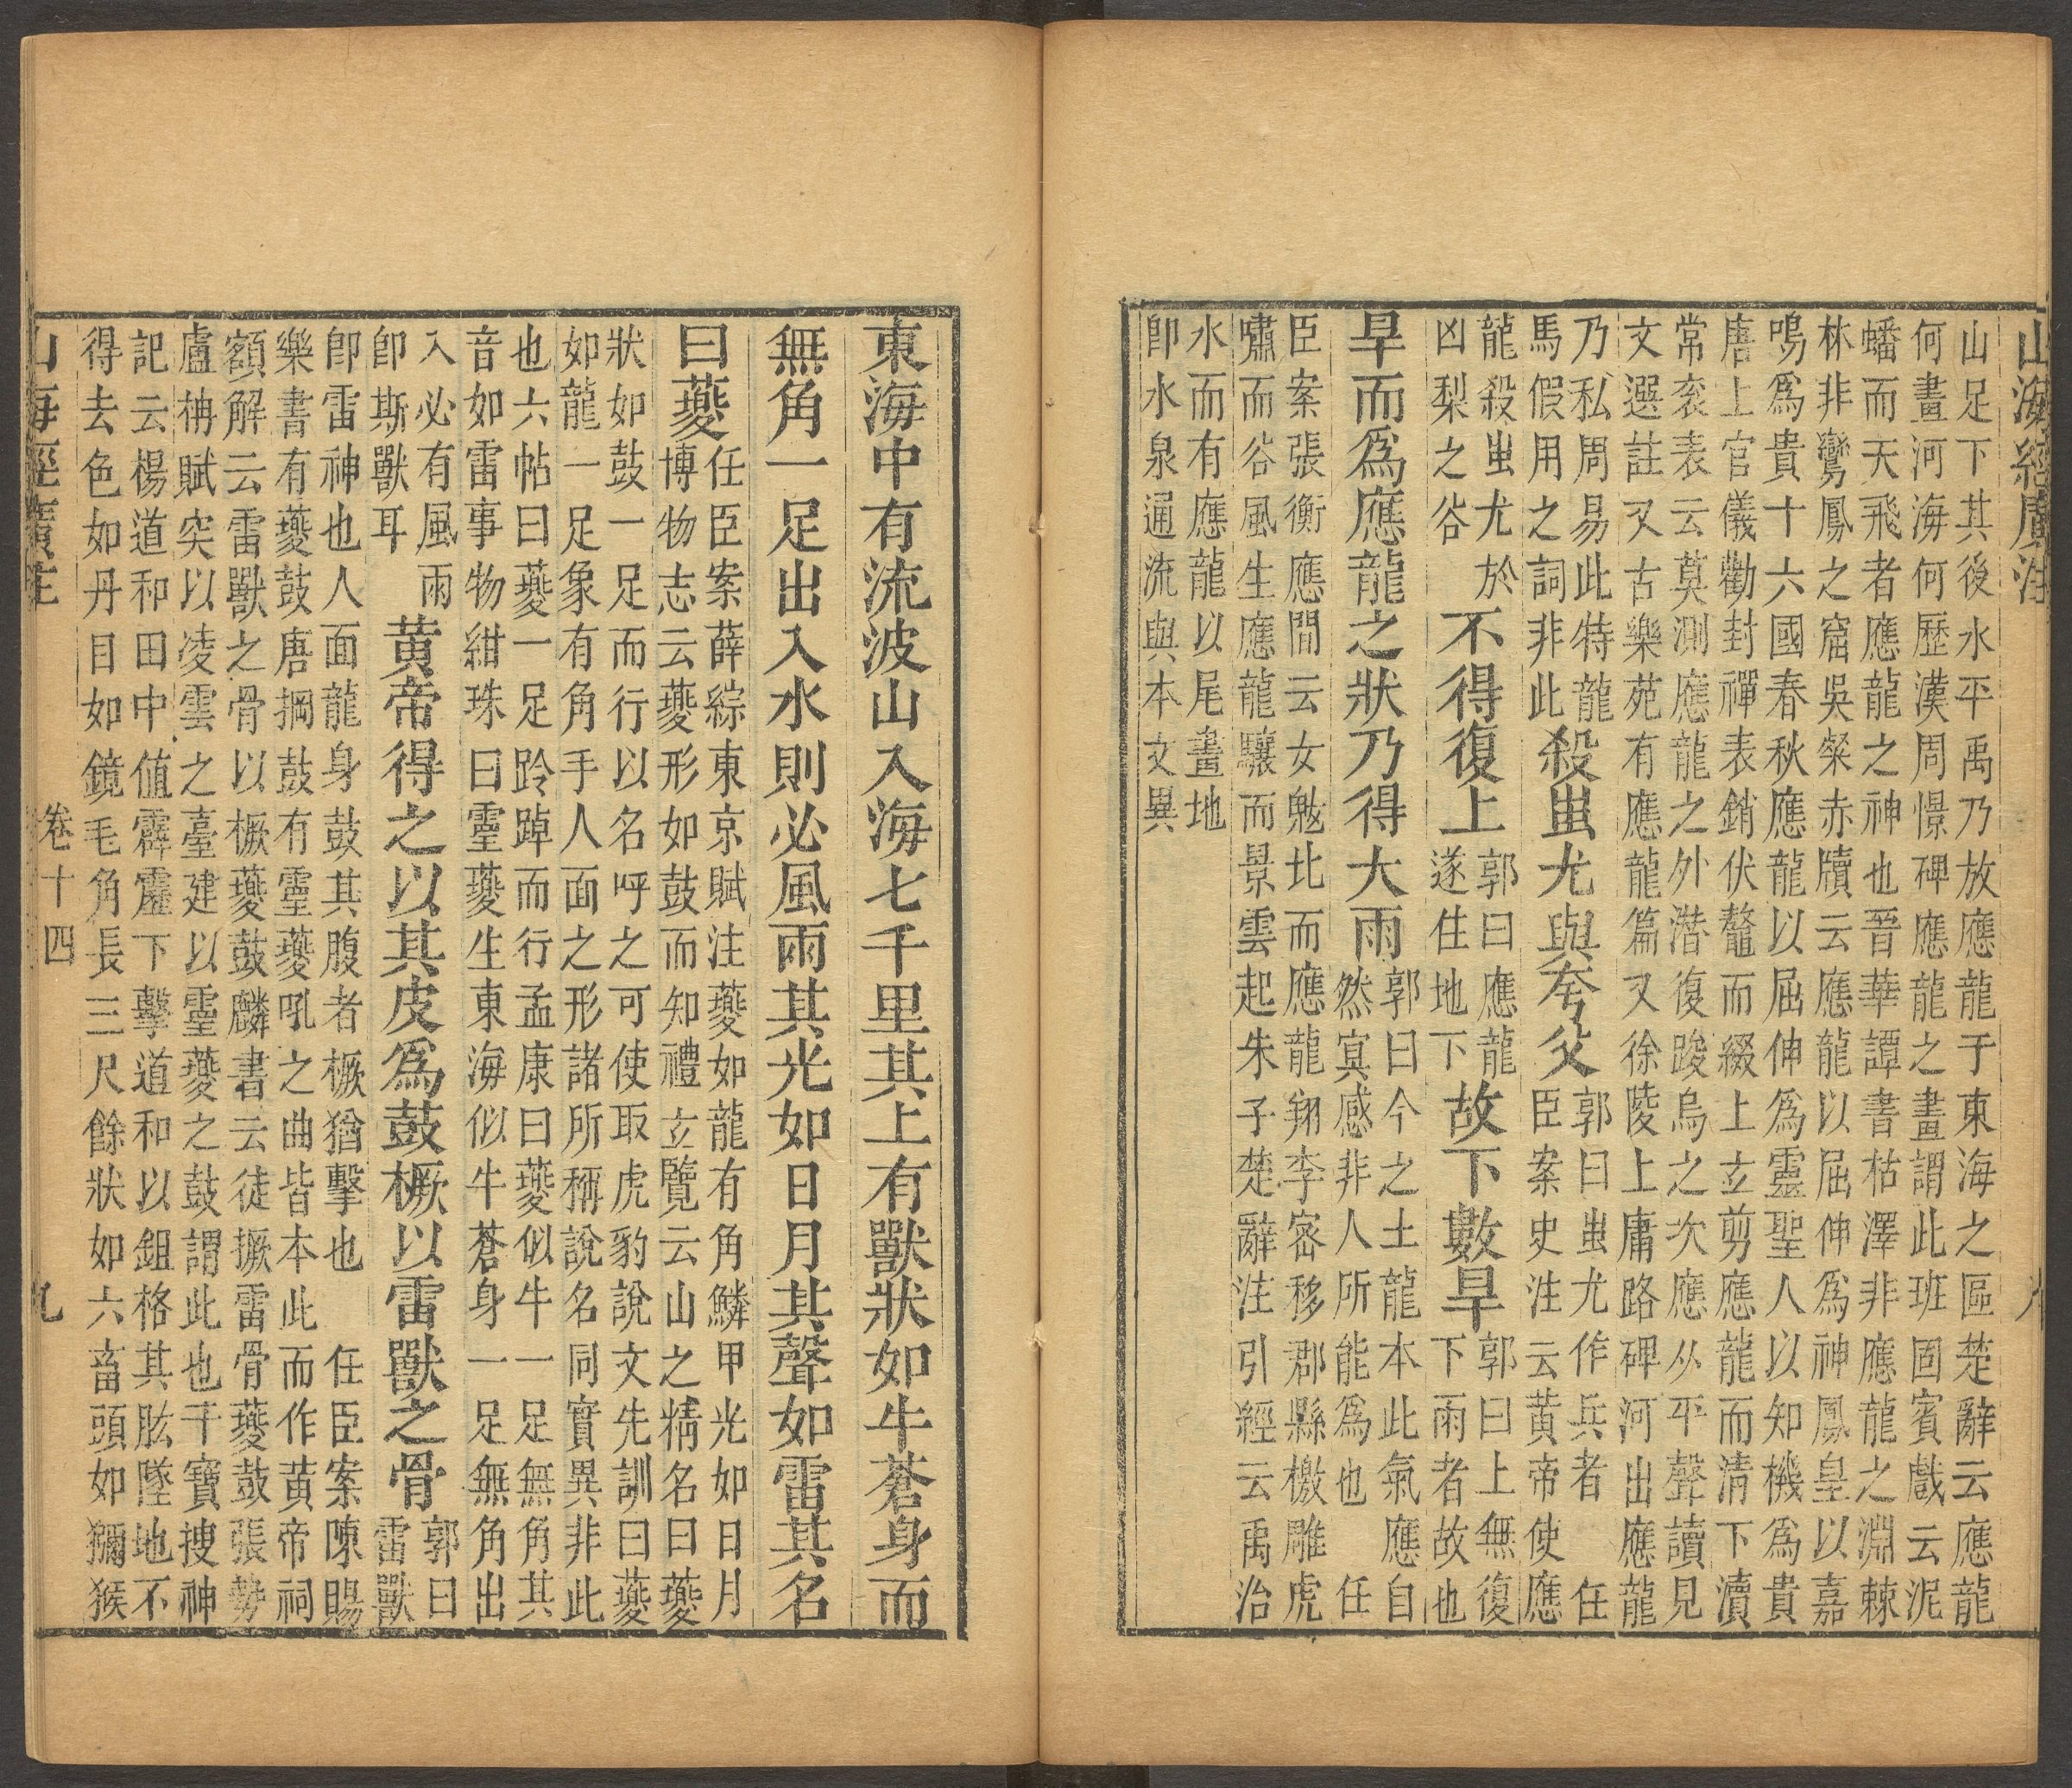 山海經廣注
山足下其後水平禹乃放應龍于東海之區楚辭云應龍
何畫河海何歷漢周憬碑應龍之畫謂此班固賓戲云泥
蟠而天飛者應龍之神也晉華譚書枯澤非應龍之淵棘
林非鸞鳳之窟吳粲赤牘云應龍以屈伸爲神鳳皇以嘉
鳴爲貴十六國春秋應龍以屈伸爲靈聖人以知機爲貴
唐上官儀勸封禪表銷伏鼇而綴上立剪應龍而清下瀆
常袞表云莫測應龍之外潛復踆烏之次應从平聲讀見
文選註又古樂苑有應龍篇又徐陵上庸路碑河出應龍
乃私周易此特龍
馬假用之詞非此
殺蚩尤與夸父
郭曰蚩尤作兵者 任
臣案史注云黃帝使應
龍殺蚩尤於
凶梨之谷
不得復上
郭曰應龍
遂住地下
故下數旱
郭曰上無復
下雨者故也
旱而爲應龍之狀乃得大雨
郭曰今之土龍本此氣應自
然冥感非人所能爲也 任
臣案張衡應間云女魃北而應龍翔李密移郡縣檄雕虎
嘯而谷風生應龍驤而景雲起朱子楚辭注引經云禹治
水而有應龍以尾畫地
卽水泉通流與本文異
東海中有流波山入海七千里其上有獸狀如牛蒼身而
無角一足出入水則必風雨其光如日月其聲如雷其名
曰夔
任臣案薛綜東京賦注夔如龍有角鱗甲光如日月
博物志云夔形如鼓而知禮玄覽云山之精名曰夔
狀如鼓一足而行以名呼之可使取虎豹說文先訓曰夔
如龍一足象有角手人面之形諸所稱說名同實異非此
也六帖曰夔一足跉踔而行孟康曰夔似牛一足無角其
音如雷事物紺珠曰靈夔生東海似牛蒼身一足無角出
入必有風雨
卽斯獸耳
黃帝得之以其皮爲鼓橛以雷獸之骨
郭曰
雷獸
卽雷神也人面龍身鼓其腹者橛猶擊也 任臣案陳暘
樂書有夔鼓唐掆鼓有靈夔吼之曲皆本此而作黃帝祠
額解云雷獸之骨以橛夔鼓麟書云徒撅雷骨夔鼓張勢
盧柟賦突以凌雲之臺建以靈夔之鼓謂此也干寶搜神
記云楊道和田中值霹靂下擊道和以鉏格其肱墜地不
得去色如丹目如鏡毛角長三尺餘狀如六畜頭如獼猴
山海經廣注
卷十四
九